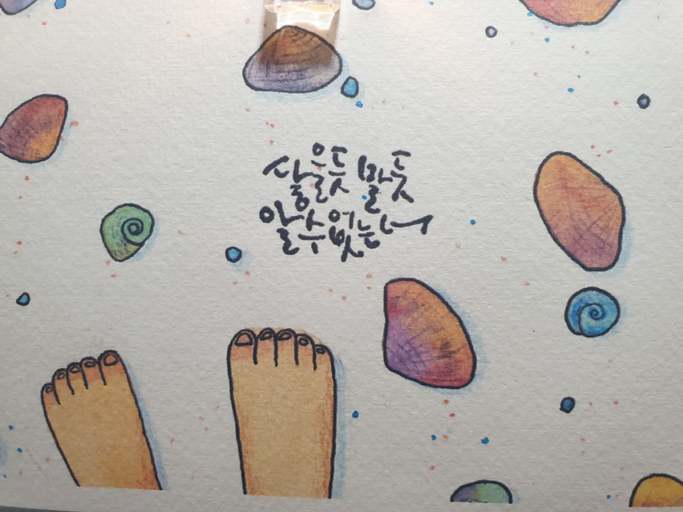 닿을듯 말듯
알수없는 너